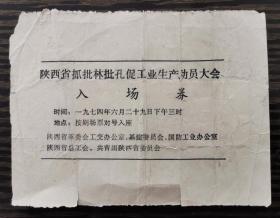 陕西省抓批林批孔促工业生产动员大会
入场券
时间：一九七四年六月二十九日下午三时
地点：按剧场票对号入座
陕西省革委会工交办公室、基建委员会、国防工业办公室
陕西省总工会、共青团陕西省委员会